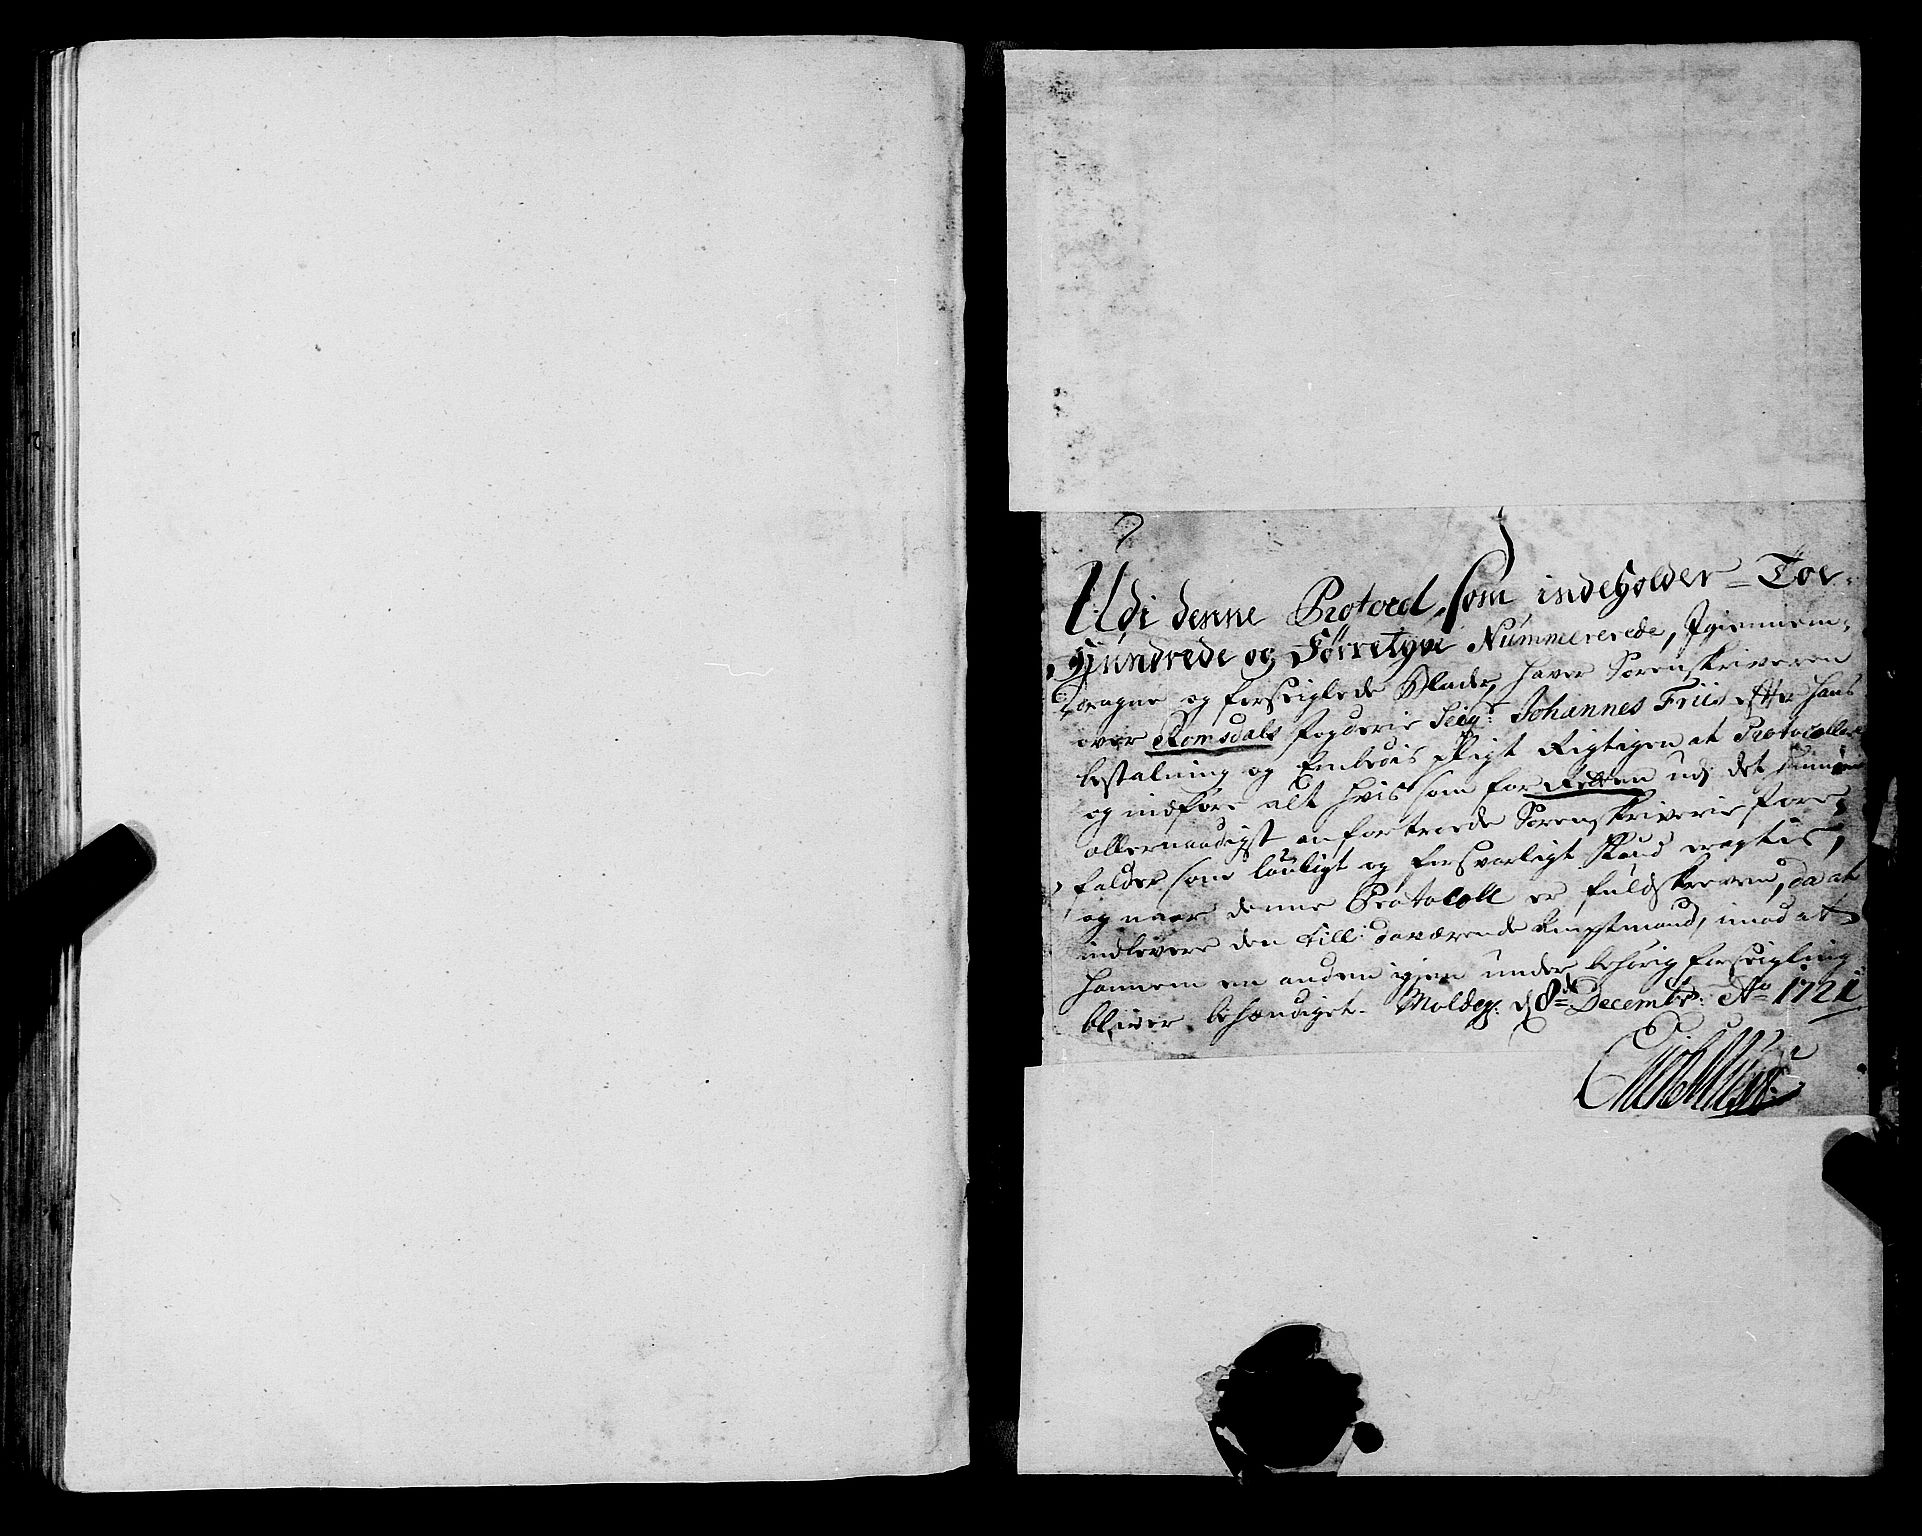 Udi denne Protocol, som indeholder Toe-
hundrede og Førretyve Nummererede, Igiennem-
dragne og forseiglede Blade, haver Sorenskriveren
over Romsdals fogderie Seigr: Johannes Friis efter hans
bestalning og Embeds pligt Rigtigen at Protocollere
og indføre alt hvis som for Retten udj det hannem
allernaadigst anfortroede Sorenskriverie fore-
falder som lovligt og forsvarligt
og naar denne Protocoll er fuldskreven, da at
indlevere den till daværende Amptmand, imod at
hannem en anden igien under behørig forseigling
bliver behændiget. Molde d 8de Decembr: Ao 1721